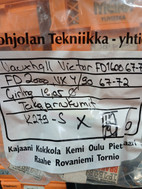 ohjolan Tekniikka - yhti
Vauxhall Victor FD1600 67-7
FD2000 VX4/90 67-72
Girling 19.05 Ø
Takajarrukumit
K079-S X
Kajaani Kokkola Kemi Oulu Piet
Raahe Rovaniemi Tornio